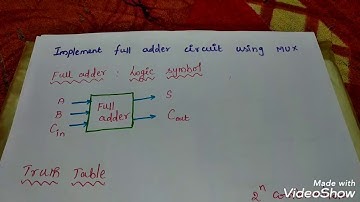 Implement full adder circuit using MUX
Full adder : Logic symbol
A
B
Cin
Full adder
S
Cout
Truth Table
2^n
Made with
VideoShow